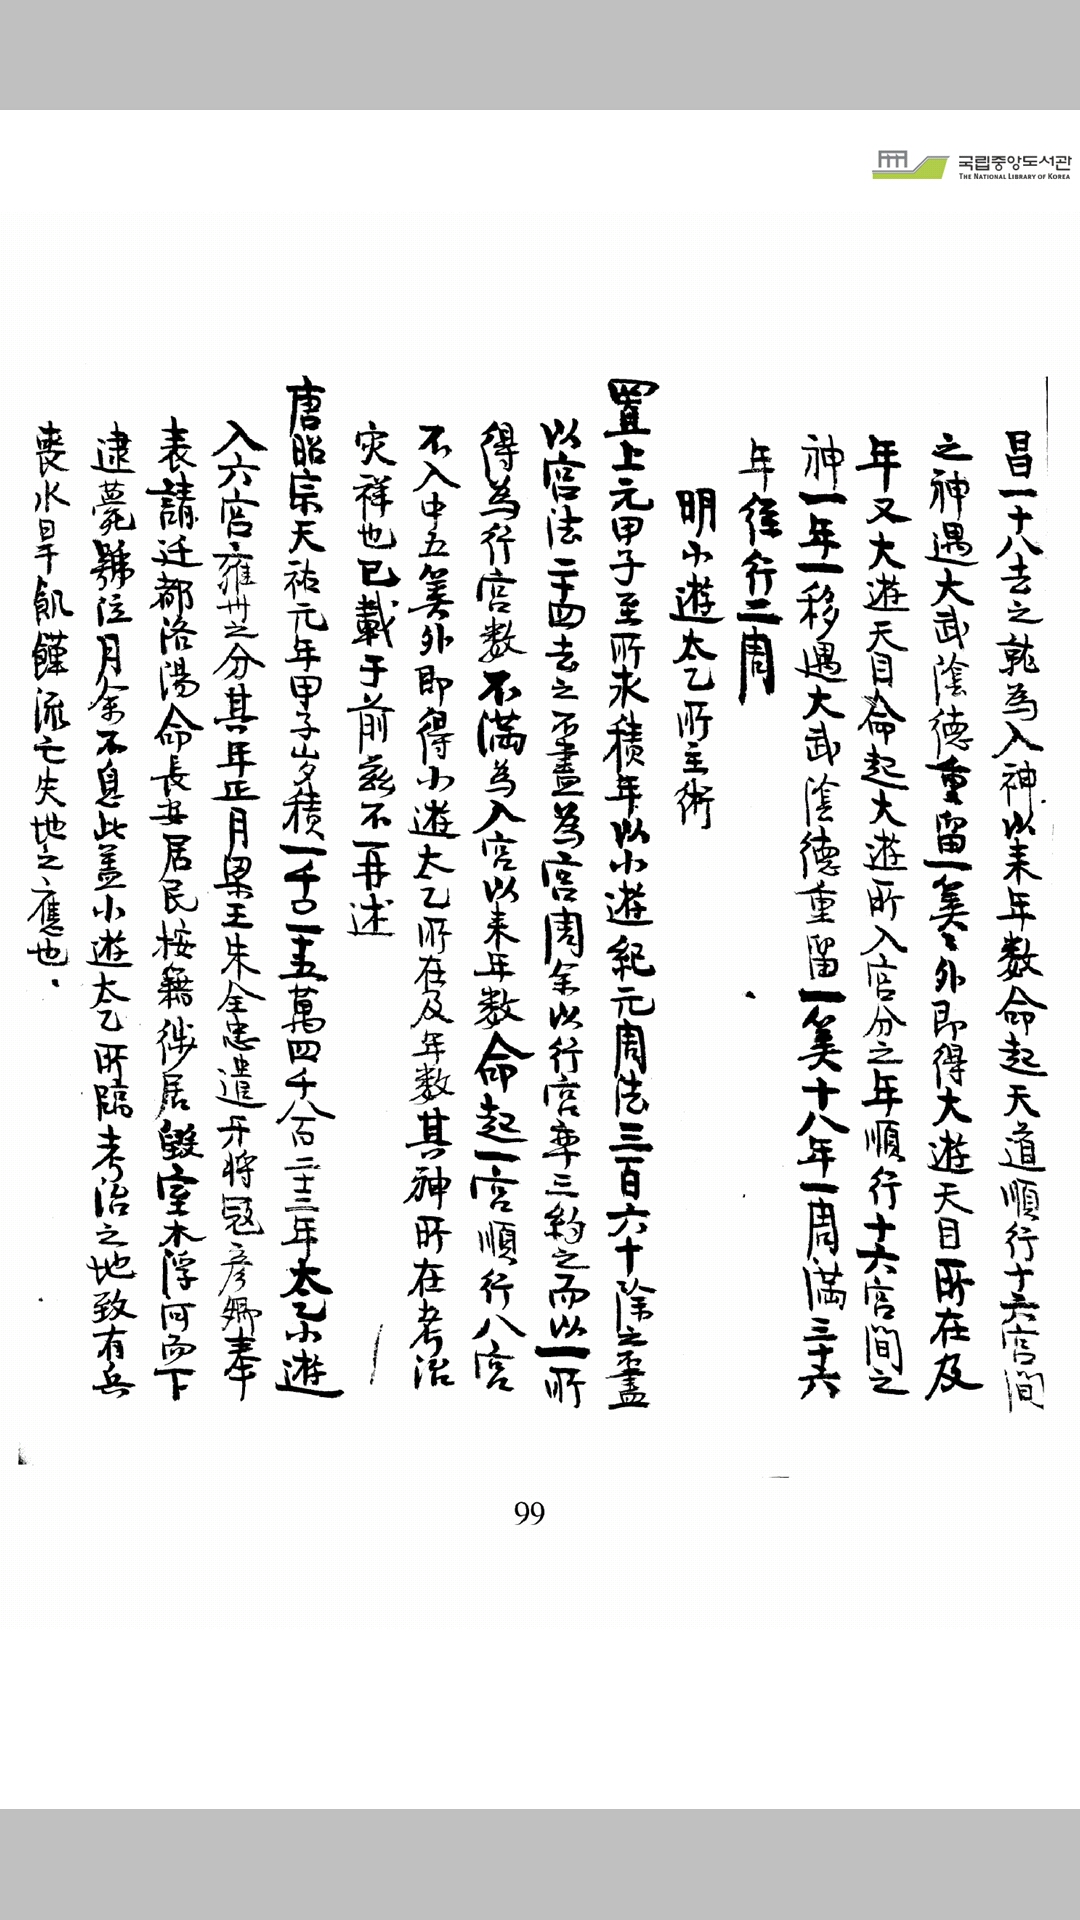 국립중앙도서관
THE NATIONAL LIBRARY OF KOREA
昌一十八去之乾為入神以来年数命起天道順行十六宮間
之神遇大武陰德重留一筭〻外即得大遊天目所在及
年又大遊天目命起大遊所入宮分之年順行十六宮間之
神一年一移遇大武陰德重留一筭十八年一周滿三十六
年徑行二周
明小遊太乙所主術
置上元甲子至所求積年以小遊紀元周法三百六十除之不盡
以宮法二十四去之不盡為宮周余以行宮率三約之而以一所
得為行宮数不滿為入宮以来年数命起一宮順行八宮
不入中五筭外即得小遊太乙所在及年数其神所在考治
灾祥也已載于前茲不再述
唐昭宗天祐元年甲子歲積一千〇一十五萬四千八百二十三年太乙小遊
入六宮雍州之分其年正月梁王朱全忠遣牙將寇彦卿奉
表請迁都洛湯命長安居民桉籍徙居毀室木浮河而下
逮甍號泣月余不息此盖小遊太乙所臨考治之地致有兵
喪水旱飢饉流亡失地之應也
99